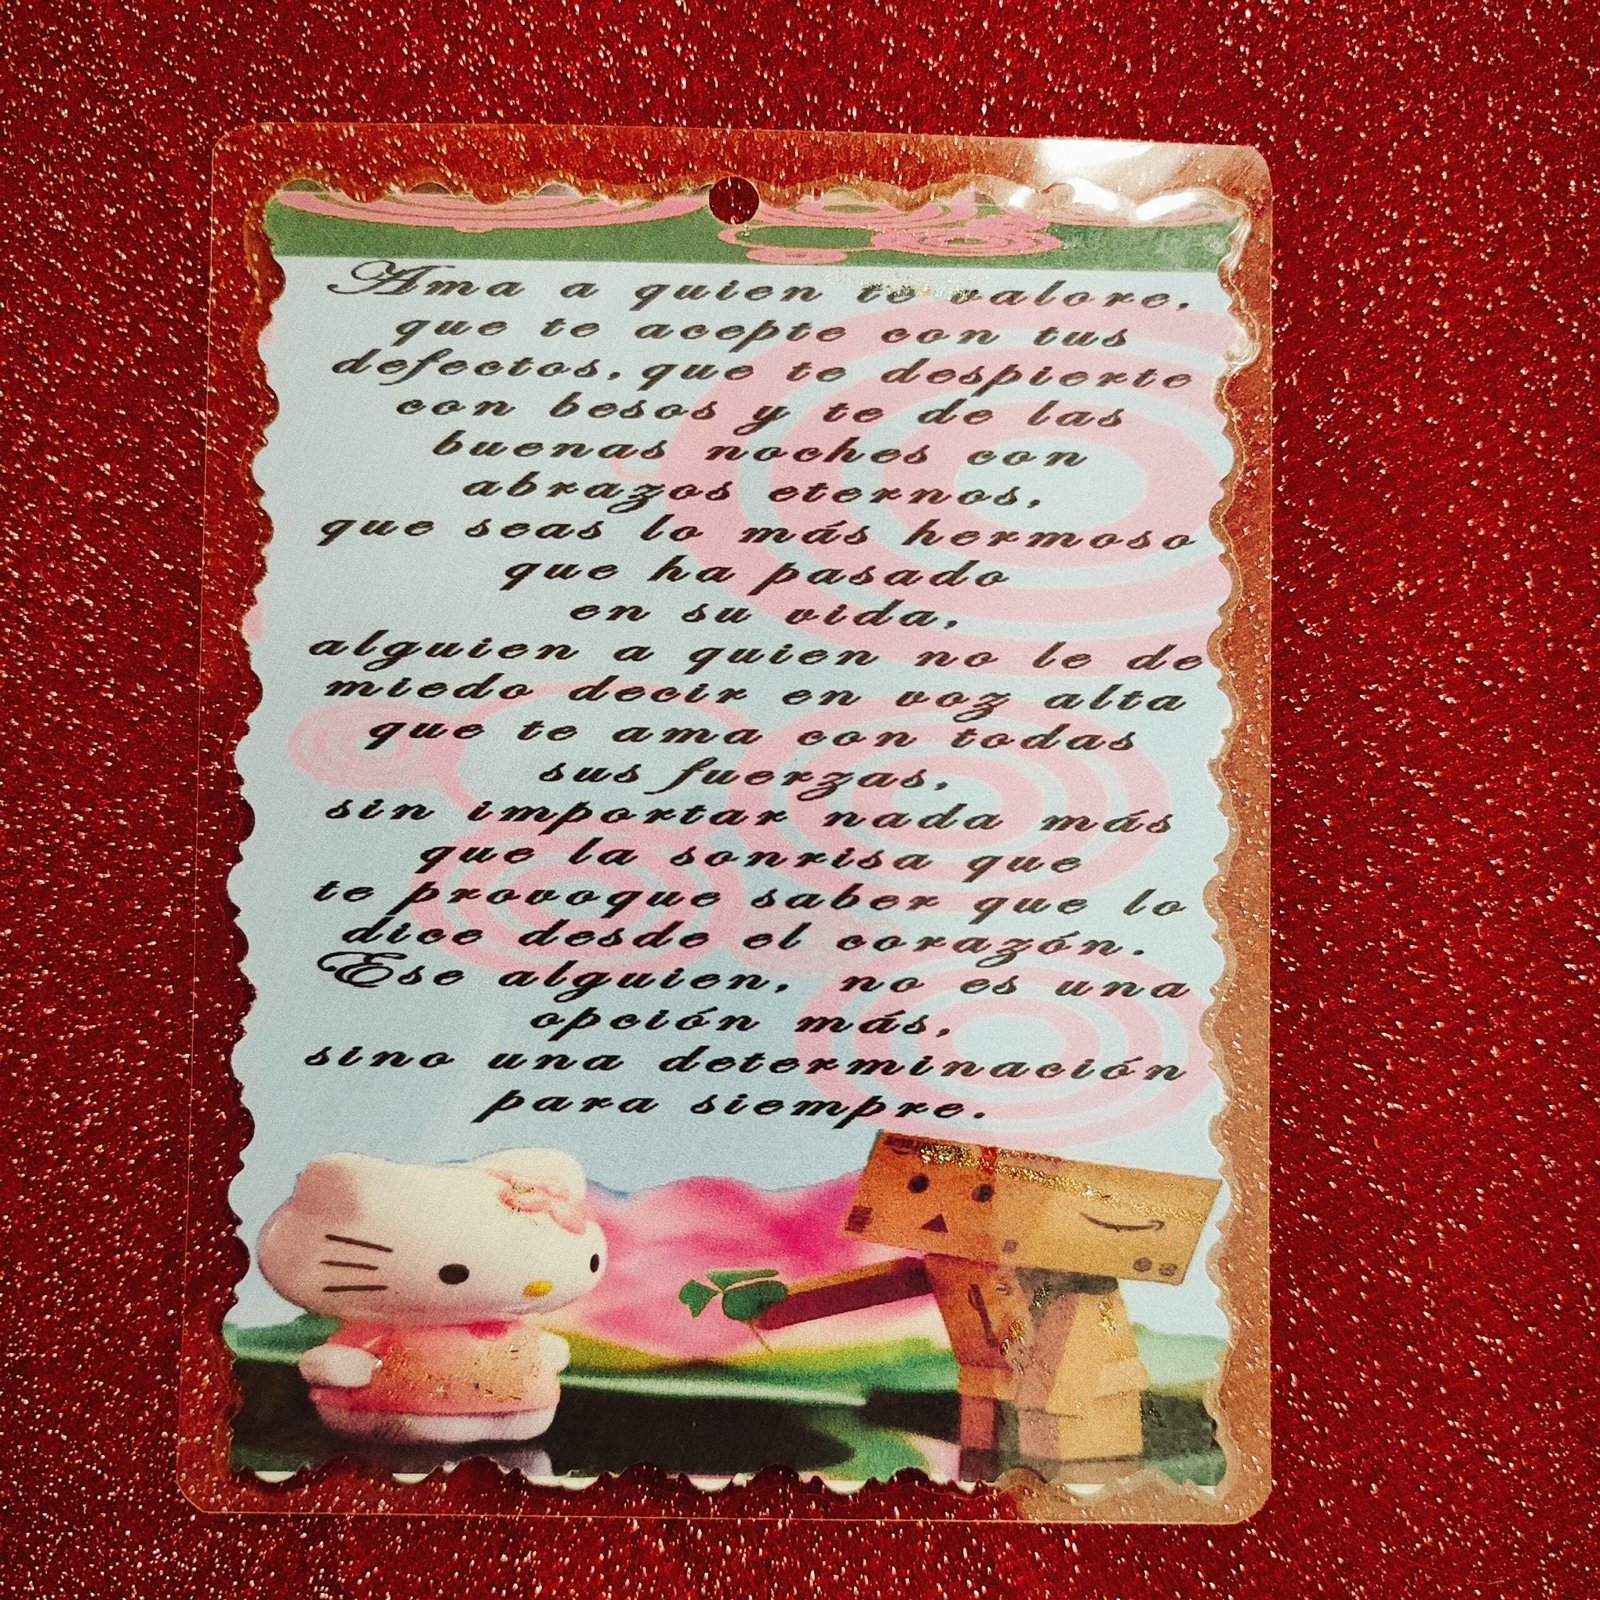 Ama a quien te valore,
que te acepte con tus
defectos, que te despierte
con besos y te de las
buenas noches con
abrazos eternos,
que seas lo más hermoso
que ha pasado
en su vida,
alguien a quien no le de
miedo decir en voz alta
que te ama con todas
sus fuerzas,
sin importar nada más
que la sonrisa que
te provoque saber que lo
dice desde el corazón.
Ese alguien, no es una
opción más,
sino una determinación
para siempre.